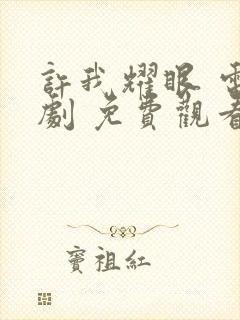 許我耀眼 電
劇 免費觀看
竇祖紅